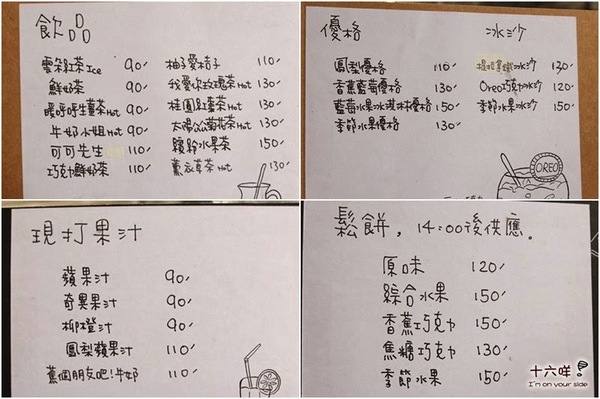 飲品
雲朵紅茶 Ice 90
鮮奶茶 90
暖呼呼生薑茶 Hot 90
牛奶小姐 Hot 90
可可先生 110
巧克鮮奶茶 110
柚子愛桔子 110
我愛你玫瑰茶 Hot 130
桂圓紅棗茶 Hot 130
太陽公公菊花茶 Hot 130
繽紛水果茶 150
薰衣草茶 Hot 130
優格
鳳梨優格 110
香蕉藍莓優格 130
藍莓水果冰淇淋優格 150
季節水果優格 130
冰沙
提拉拿鐵冰沙 130
Oreo巧克力冰沙 120
季節水果冰沙 150
OREO
現打果汁
蘋果汁 90
奇異果汁 90
柳橙汁 90
鳳梨蘋果汁 110
蕉個朋友吧!牛奶 110
鬆餅, 14:00後供應。
原味 120
綜合水果 150
香蕉巧克力 150
焦糖巧克力 130
季節水果 150
十六咩
I'm on your side